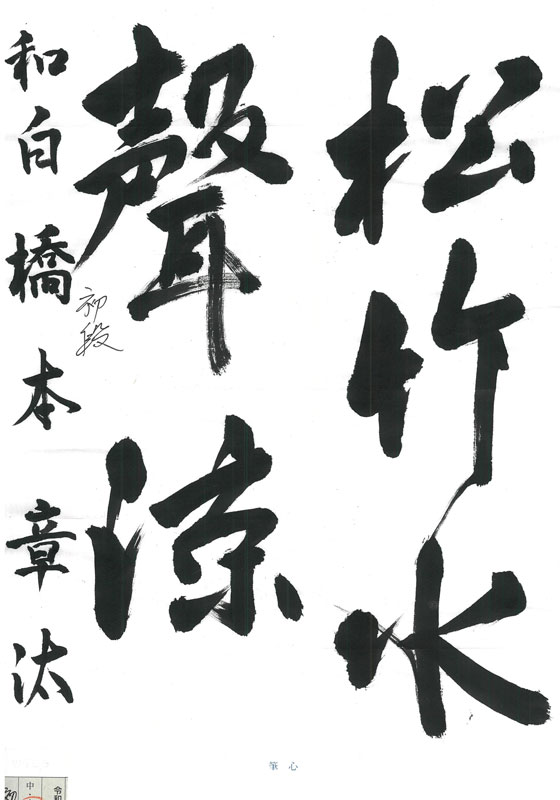 松竹水
聲涼
初段
和白 橋本章汰
筆心
令和
中・